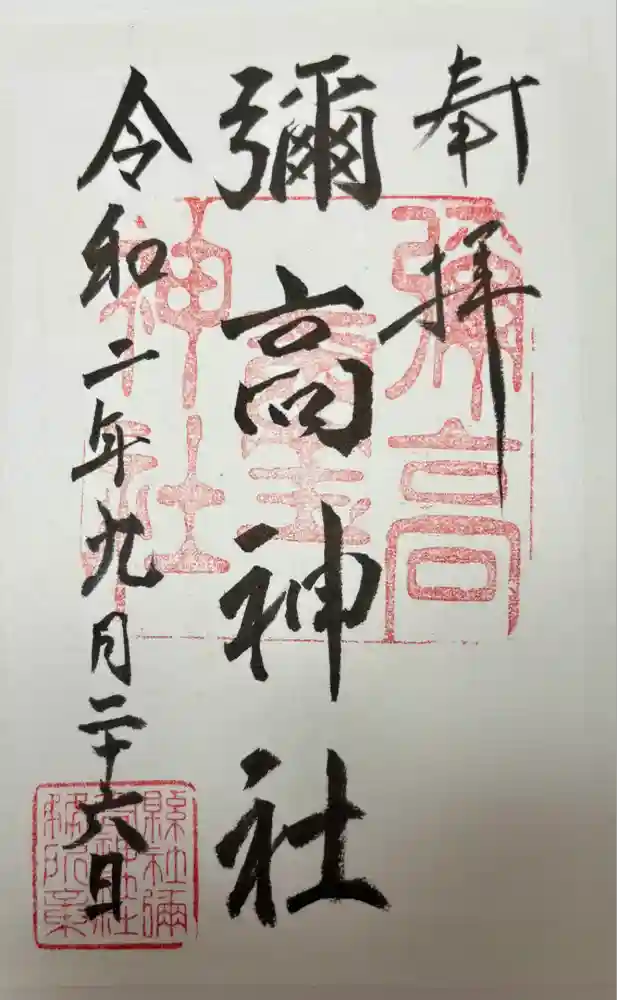 奉拝
彌高神社
令和二年九月二十六日
彌高
神社
縣社彌
高神社